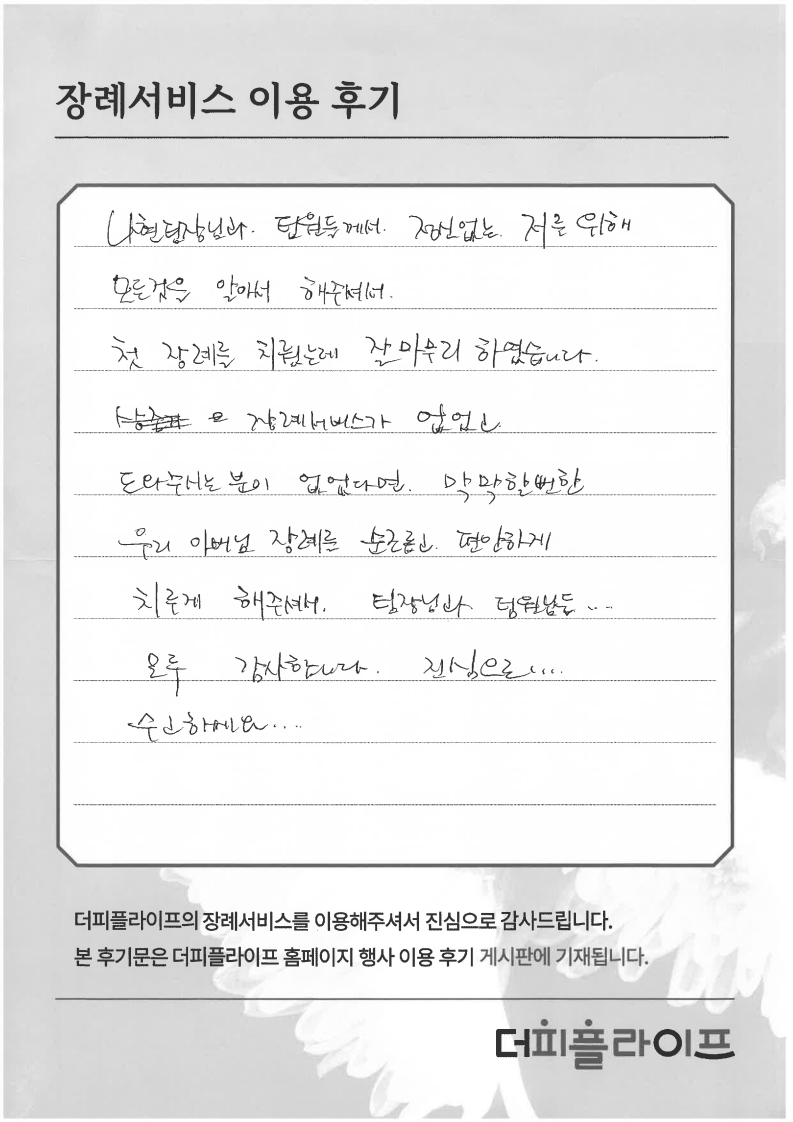 장례서비스 이용 후기
나현팀장님과. 팀원들께서. 정신없는. 저를 위해
모든것을 알아서 해주셔서.
첫 장례를 치뤘는데 잘 마무리 하였습니다.
장례서비스가 없었고
도와주시는 분이 없었다면. 막막할번한
우리 아버님 장례를 순조롭고. 편안하게
치루게 해주셔서. 팀장님과 팀원님들...
모두 감사합니다. 진심으로....
수고하세요....
더피플라이프의 장례서비스를 이용해주셔서 진심으로 감사드립니다.
본 후기문은 더피플라이프 홈페이지 행사 이용 후기 게시판에 기재됩니다.
더피플라이프